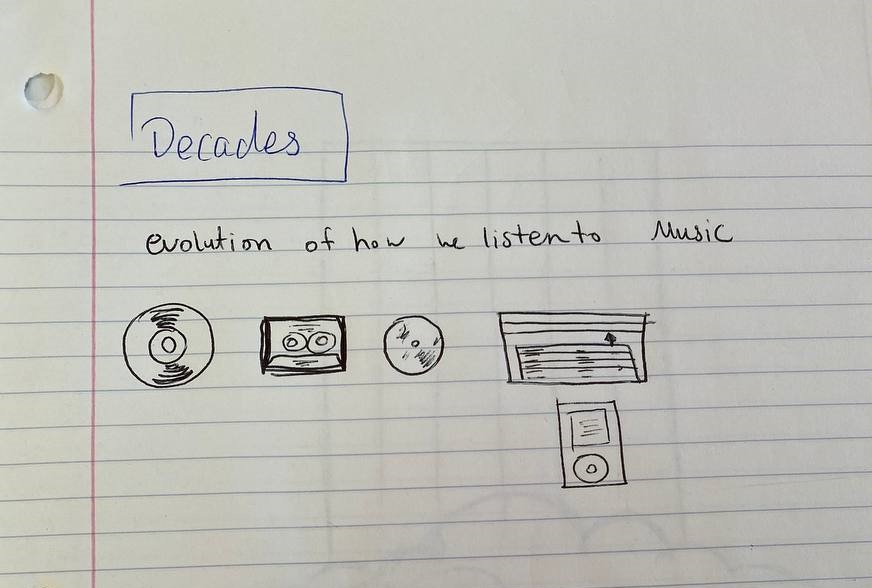 Decades
evolution of how we listen to Music